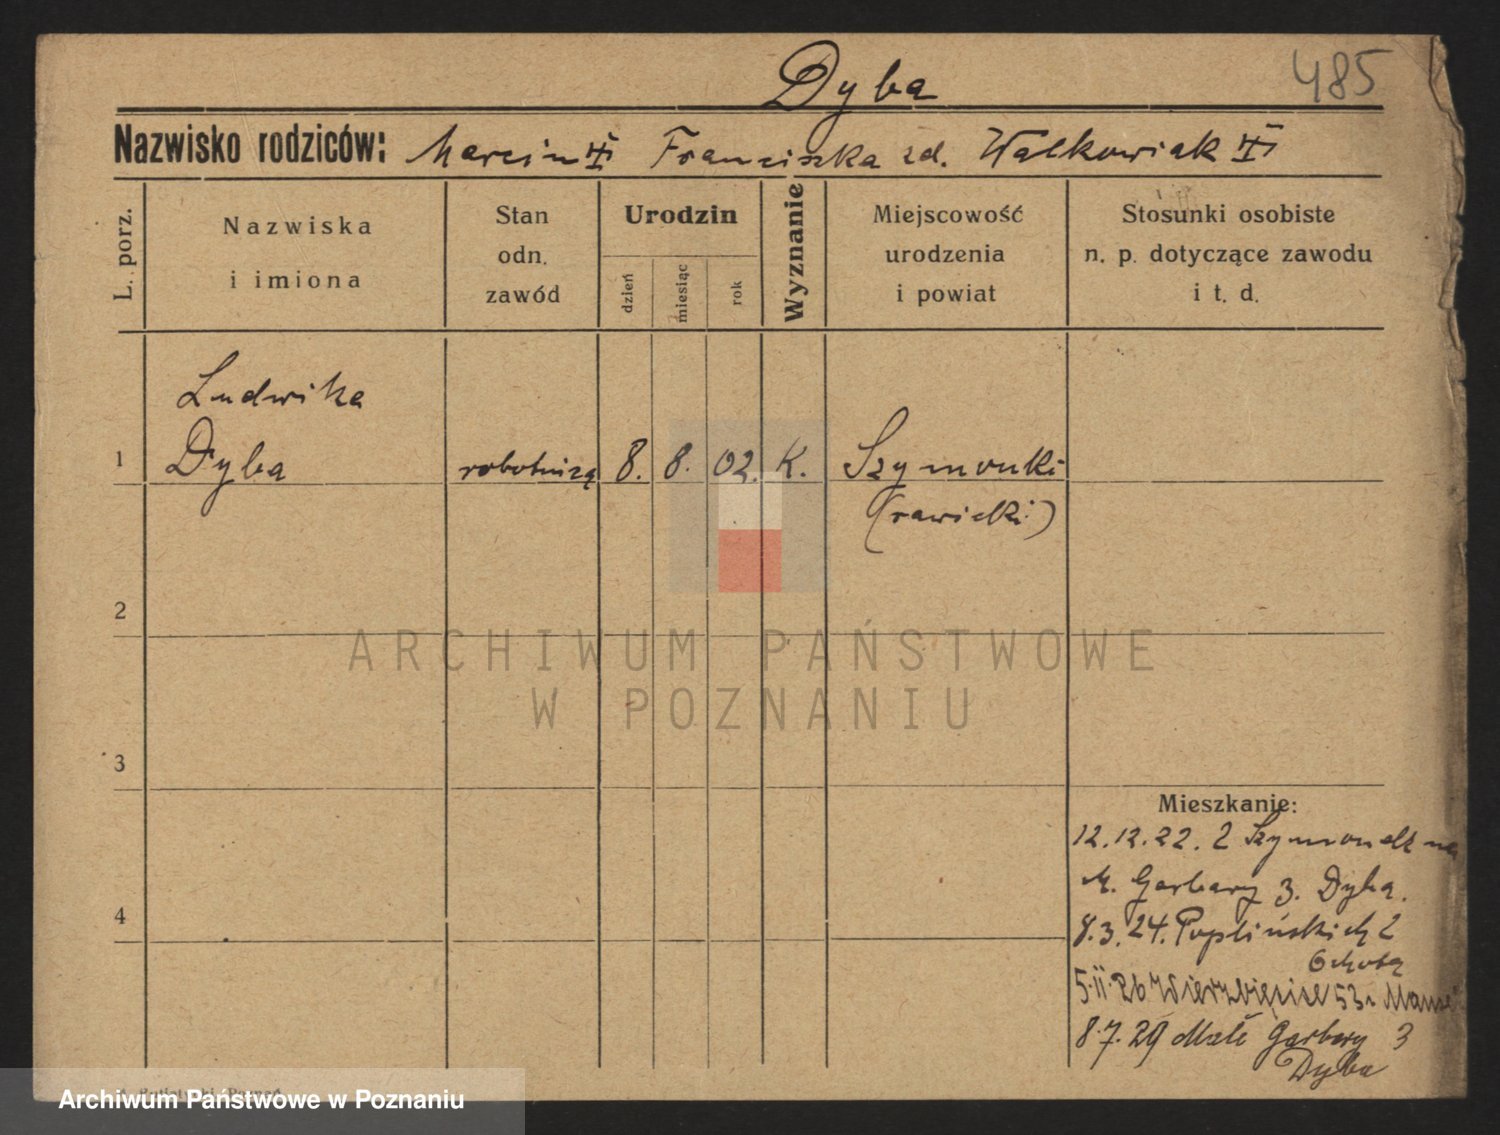 Dyba
485
Nazwisko rodziców: Marcin Franciszka zd. Walkowiak
L. porz.
Nazwiska
i imiona
Stan
odn.
zawód
Urodzin
dzień
miesiąc
rok
Wyznanie
Miejscowość
urodzenia
i powiat
Stosunki osobiste
n. p. dotyczące zawodu
i t. d.
Ludwika
1 Dyba robotnicą 8. 8. 02. K. Szymonki
(rawicki)
2
ARCHIWUM PAŃSTWOWE
W POZNANIU
3
Mieszkanie:
12.12.22. z Szymonek na
M. Garbary 3. Dyba.
4
8.3.24. Poplińskich 2
5.II.26 Wierzbięcice 53
8.7.29 Małe Garbary 3
Dyba
Archiwum Państwowe w Poznaniu